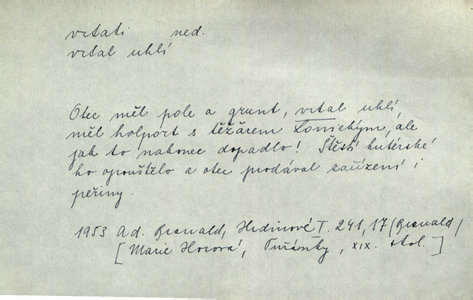 vrtati ned.
vrtal uhlí
Otec měl pole a grunt, vrtal uhlí,
měl holport s těžařem Lonickým, ale
jak to nakonec dopadlo! Štěstí hutérské
ho opouštělo a otec prodával zařízení i
peřiny.
1953 Ad. Branald, Hrdinové T. 241, 17 (Branald)
[Marie Horová, Tuřánky, XIX. stol.]